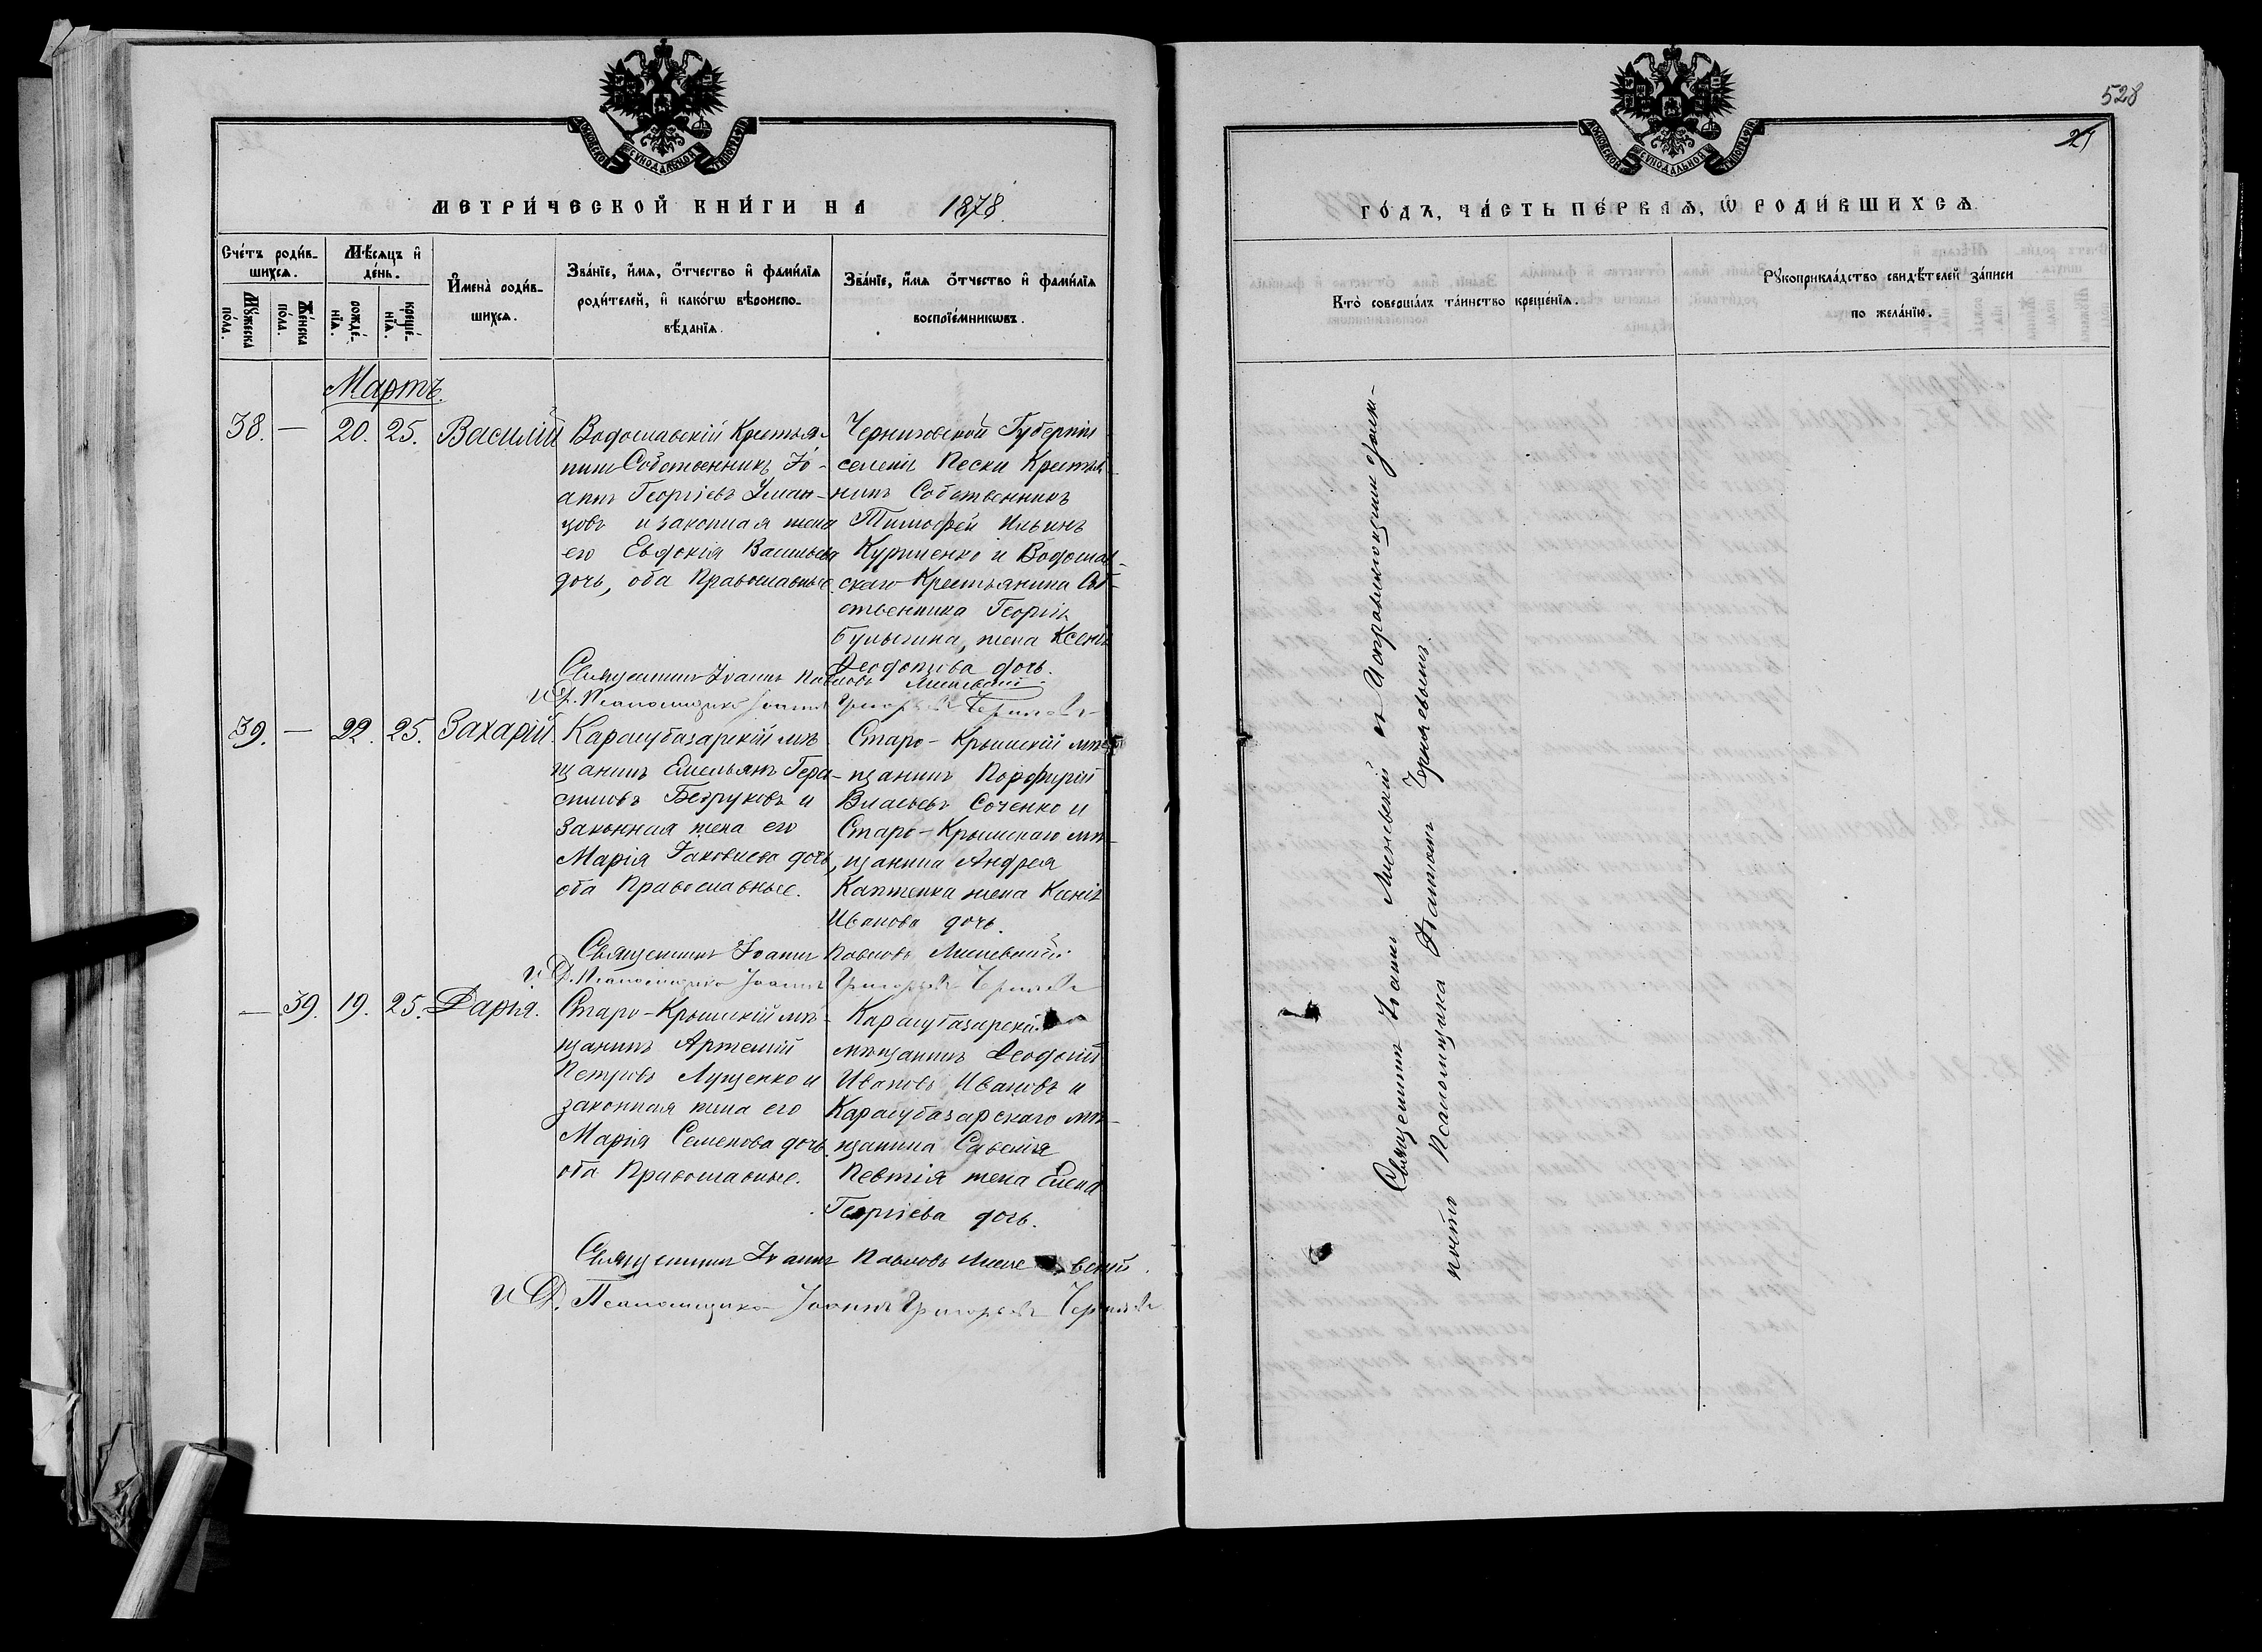 МЕТРИ́ЧЕСКОЙ КНИ́ГИ НА 1878.
Сче́тъ роди́в-
шихсѧ.
Мѣ́сѧцъ и҆
де́нь.
Мꙋ́жеска
по́ла.
Же́нска
по́ла.
рожде́-
нїѧ.
креще́-
нїѧ.
И҆мена̀ роди́в-
шихсѧ.
Зва́нїе, и҆́мѧ, ѻ҆́тчество и҆ фами́лїѧ
роди́телей, и҆ како́гѡ вѣроиспо-
вѣ́данїѧ.
Зва́нїе, и҆́мѧ ѻ҆́тчество и҆ фами́лїѧ
воспрїе́мникѡвъ.
Мартъ.
38. — 20. 25. Василій
Крестья-
нинъ Собственникъ Іо-
аннъ Георгіевъ Уман-
цовъ и законная жена
его Евдокія Васильева
дочь, оба Православные.
Черниговской Губерніи
селенія Пески Крестья-
нинъ Собственникъ
Тимофей Ильинъ
и
скаго Крестьянина Соб-
ственника Георгія
Булыгина, жена Ксенія
дочь.
Священникъ Іоаннъ Павловъ
И. Д. Псаломщика Іоаннъ Григорьевъ Чернявъ
39. — 22. 25. Захарій.
Карасубазарскій мѣ-
щанинъ Емельянъ Гера-
симовъ Безруковъ и
Законная жена его
Марія Іаковлева дочь,
оба Православные.
Старо-Крымскій мѣ-
щанинъ Порфирій
Власьевъ Соченко и
Старо-Крымскаго мѣ-
щанина Андрея
жена
Иванова дочь.
Священникъ Іоаннъ Павловъ
И. Д. Псаломщика Іоаннъ Григорьевъ
— 39. 19. 25. Дарія.
Старо-Крымскій мѣ-
щанинъ Артемій
Петровъ Лущенко и
законная жена его
Марія Семенова дочь.
оба Православные.
Карасубазарскій
мѣщанинъ Феодосій
Ивановъ Ивановъ и
Карасубазарскаго мѣ-
щанина Савелія
жена Елена
Георгіева дочь.
Священникъ Іоаннъ Павловъ
И. Д. Псаломщика Іоаннъ Григорьевъ
528
21
ГО́ДЪ, ЧА́СТЬ ПЕ́РВАѦ, Ѽ РОДИ́ВШИХСѦ
Кто̀ соверша́лъ та́инство креще́нїѧ.
Рꙋкоприкла́дство свидѣ́телей за́писи
по жела́нїю.
Священникъ Іоаннъ съ Исправляющимъ долж-
ность Псаломщика Іоанномъ Чернявымъ